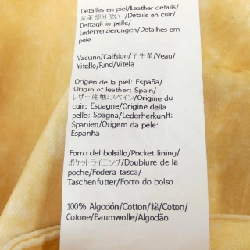 Detalles en piel/Leather details/
Détails en cuir/
Dettagli in pelle/
Lederverzierungen/Detalhes em
pele
Vacuno/Calfskin/子牛革/Veau/
Vitello/Rind/Vitela
Origen de la piel: España/
Origin of leather: Spain/
レザー産地:スペイン/Origine du
cuir: Espagne/Origine della
pelle: Spagna/Lederherkunft:
Spanien/Origem da pele:
Espanha
Forro del bolsillo/Pocket lining/
ポケットライニング/Doublure de la
poche/Fodera tasca/
Taschenfutter/Forro do bolso
100% Algodón/Cotton/綿/Coton/
Cotone/Baumwolle/Algodão